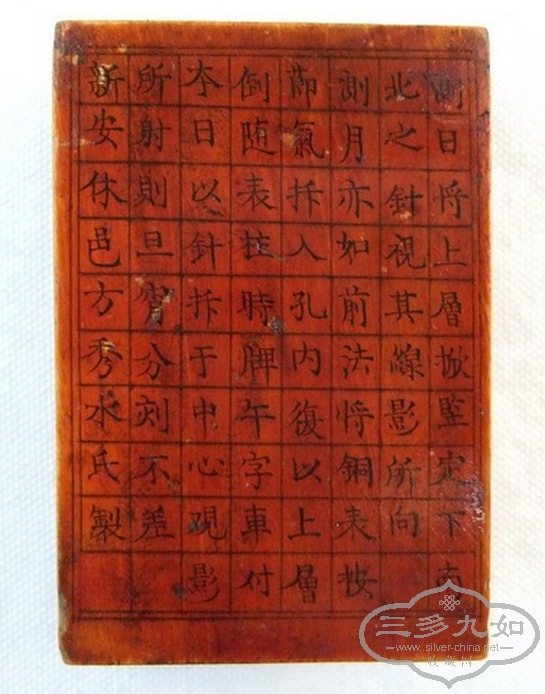 測日将上層掀竪定下南
北之針視其線影所向
測月亦如前法将銅表按
莭氣拆入孔内復以上層
倒随表柱時牌午字車付
夲日以針拆于中心覌影
所射則旦宵分刻不差
新安休邑方秀水氏製
三多九如
www.silver-china.net
收藏网